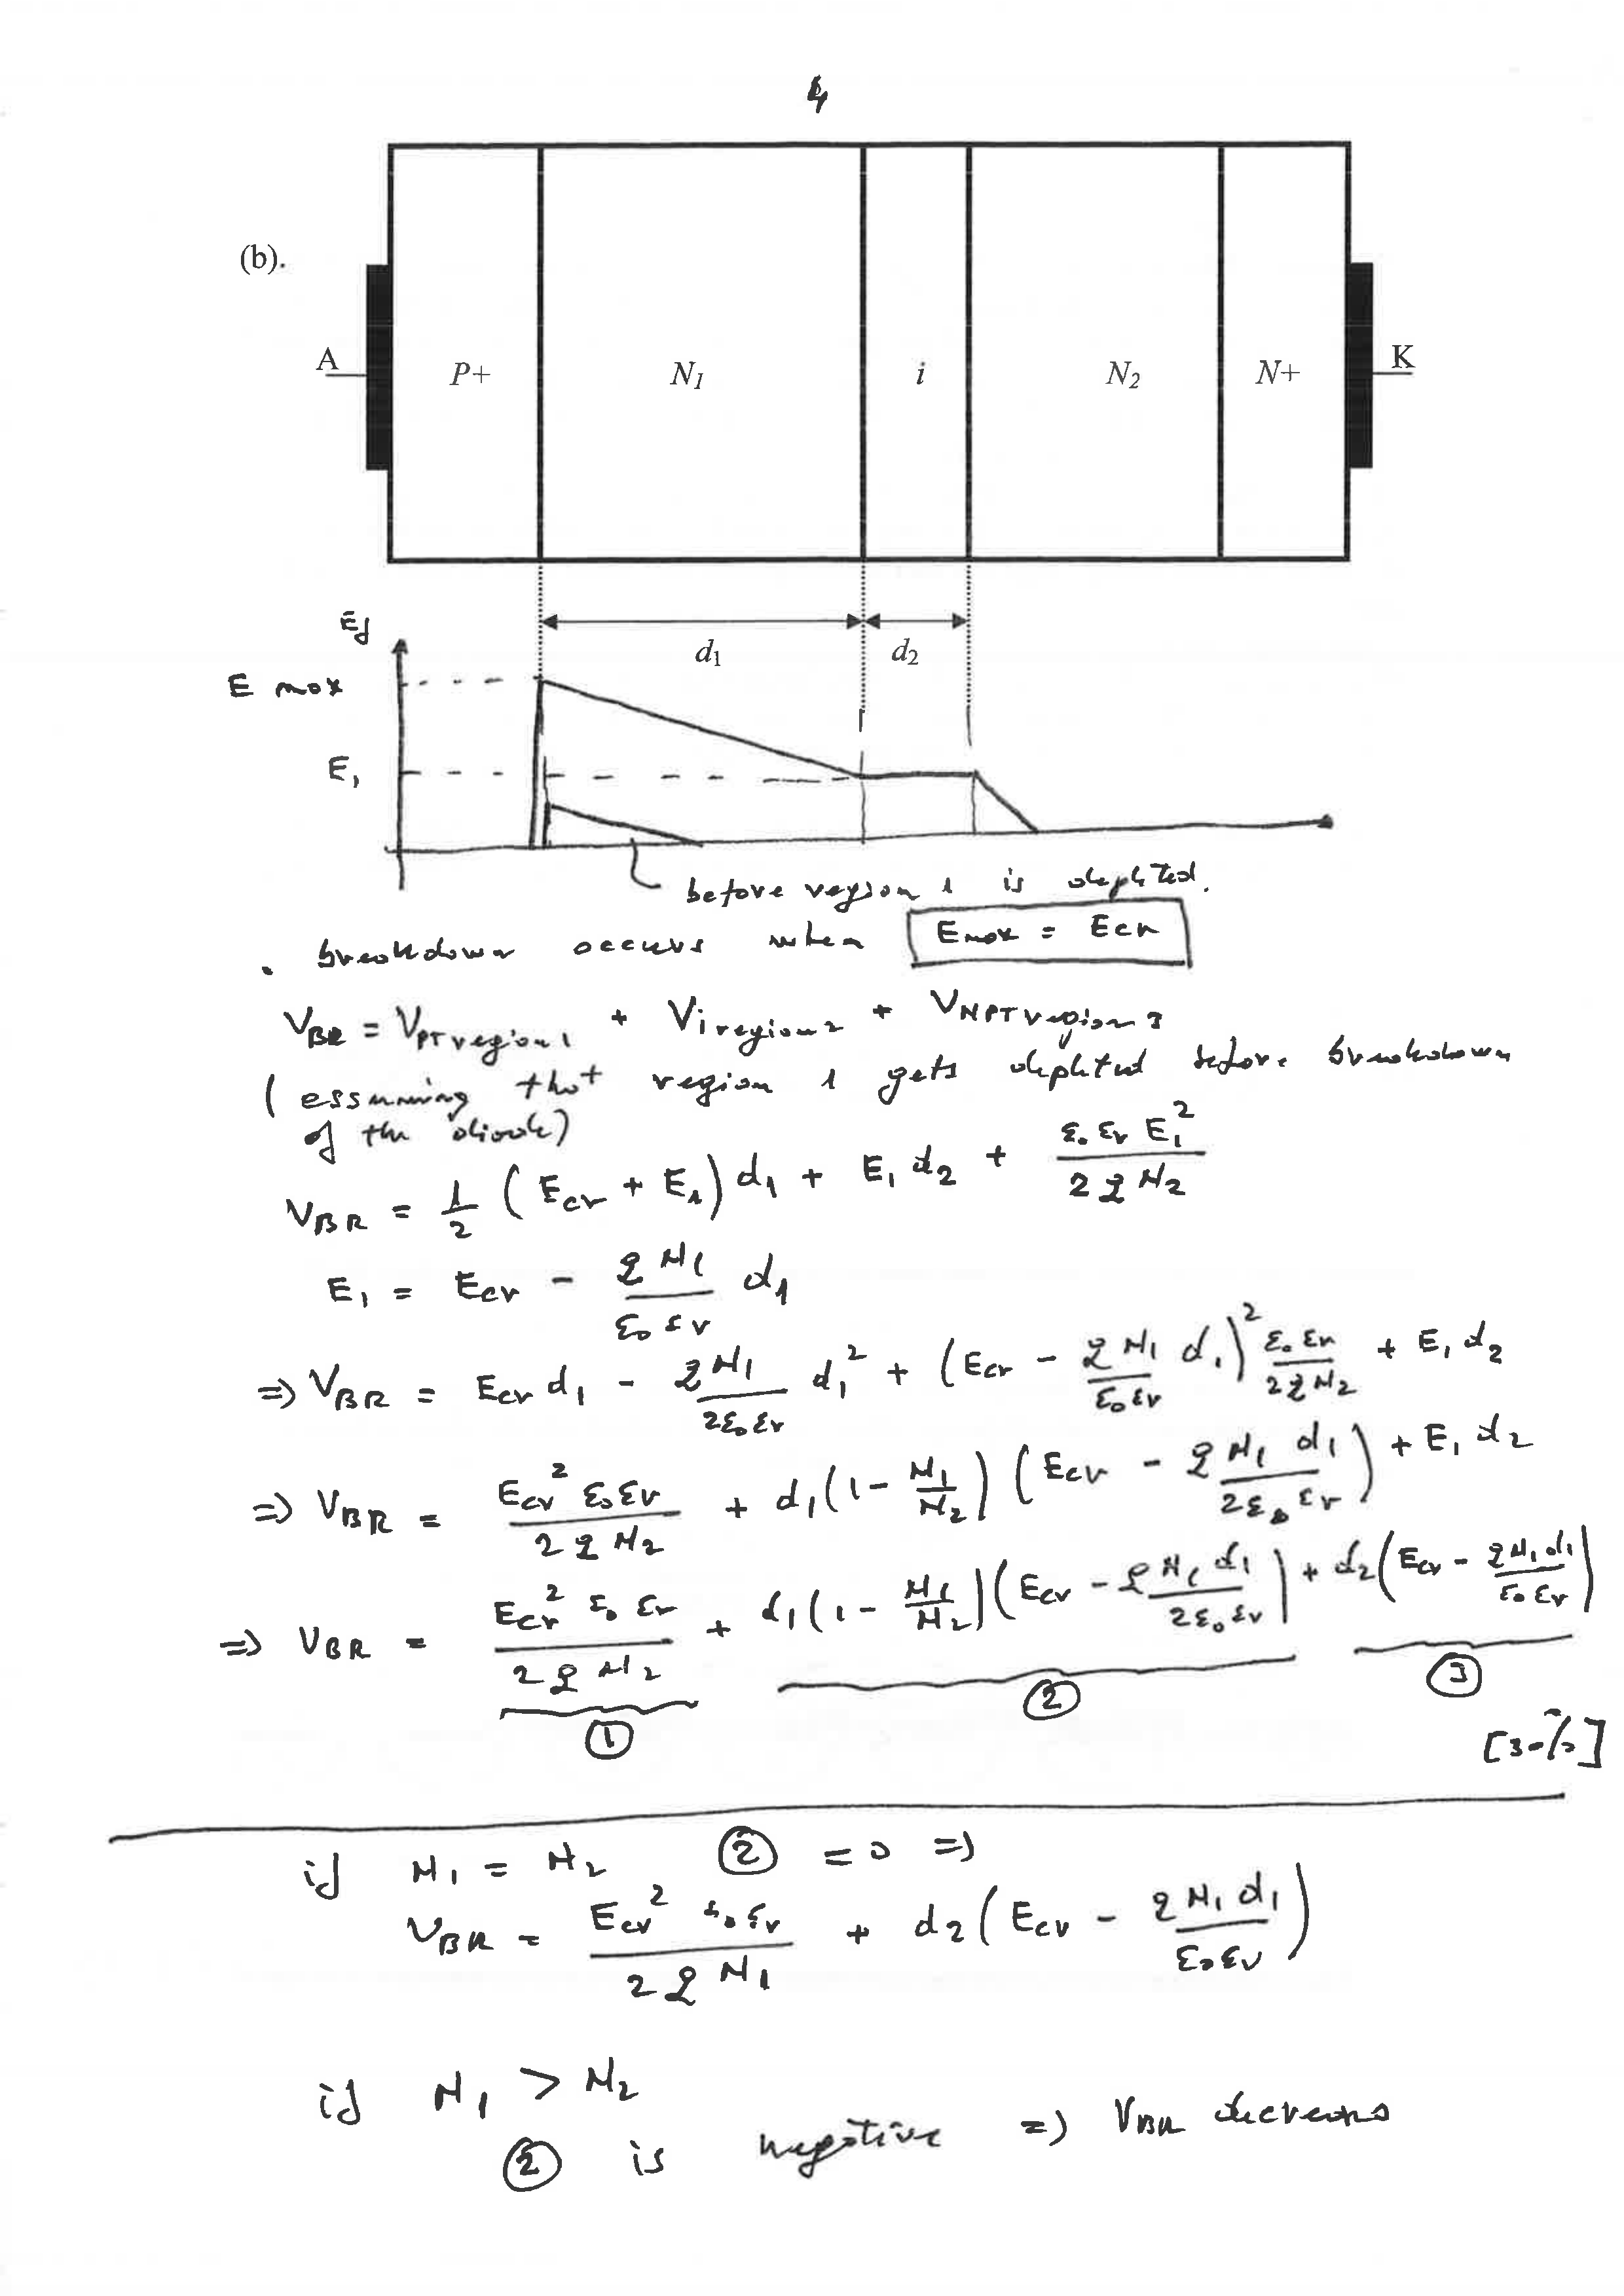 4
(b).
A P+ N₁ i N₂ N+ K
Ef
d₁ d₂
E max
E₁
before region 1 is depleted.
. breakdown occurs when Emax = Ecr
V_BR = V_PT region 1 + V_i region 2 + V_NPT region 3
(assuming that region 1 gets depleted before breakdown
of the diode)
V_BR = 1/2 (Ecr + E₁) d₁ + E₁ d₂ + ε₀ εr E₁² / 2 q N₂
E₁ = Ecr - q N₁ / ε₀ εr d₁
=> V_BR = Ecr d₁ - q N₁ / 2ε₀ εr d₁² + (Ecr - q N₁ / ε₀ εr d₁)² ε₀ εr / 2 q N₂ + E₁ d₂
=> V_BR = Ecr² ε₀ εr / 2 q N₂ + d₁ (1 - N₁/N₂) (Ecr - q N₁ d₁ / 2ε₀ εr) + E₁ d₂
=> V_BR = Ecr² ε₀ εr / 2 q N₂ + d₁ (1 - N₁/N₂) (Ecr - q N₁ d₁ / 2ε₀ εr) + d₂ (Ecr - q N₁ d₁ / ε₀ εr)
① ② ③
[30%]
if N₁ = N₂ ② = 0 =>
V_BR = Ecr² ε₀ εr / 2 q N₁ + d₂ (Ecr - q N₁ d₁ / ε₀ εr)
if N₁ > N₂
② is negative => V_BR decreases